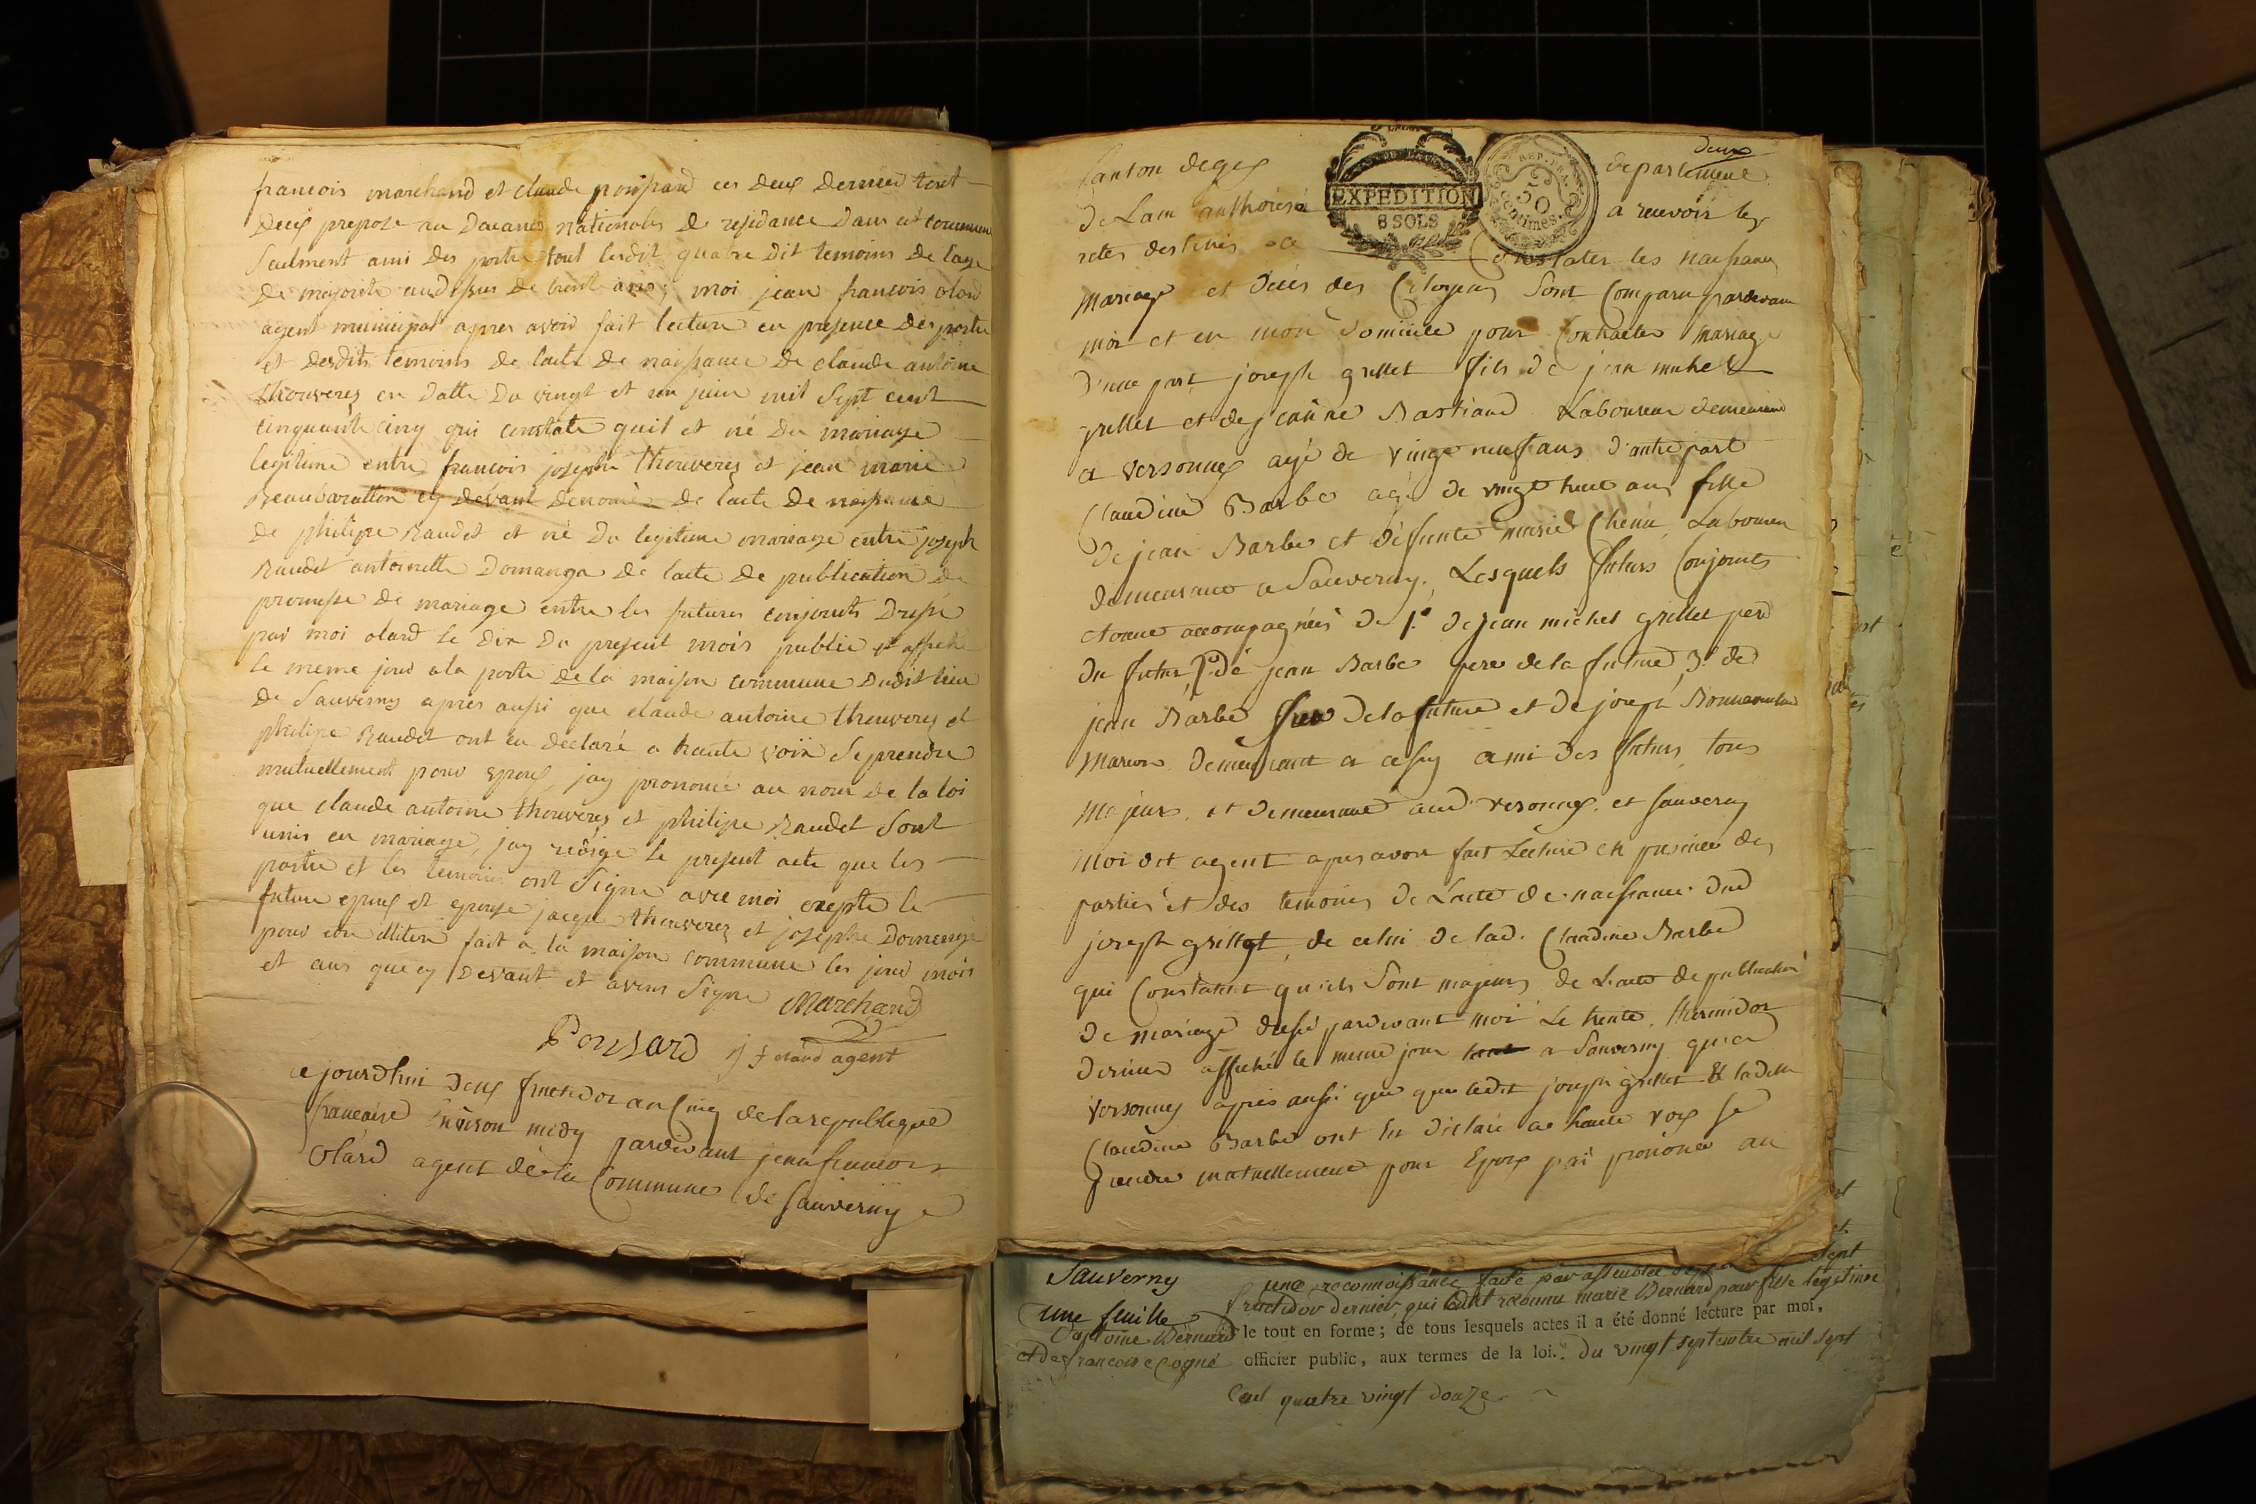 francois marchand et claude poinsard ces deux dernier tout
deux prepose au Douanes nationales de residance dans cet commune
Seulment ami des partie tout lesdit quatre dit temoins de lage
de majorite audessus de trent ans, moi jean francois olard
agent municipal apres avoir fait lecture en presence des partie
et desdits temoins de lacte de naissance de claude antoine
thouverez en datte du vingt et un juin mil sept cent
cinquante cinq qui constate quil et né du mariage
legitime entre francois josephe thouverez et jean marie
cy devant denomé de lacte de naissance
de philipe Raudet et né du legitime mariage entre joseph
Raudet antoinette Domanga de lacte de publication de
promesse de mariage entre les futures conjoints Dressé
par moi olard le dix du present mois publié et affiché
le meme jour a la porte de la maison commune dudit lieu
de Sauverny apres aussi que claude antoine thouverez et
philipe Raudet ont eu declaré a haute voix se prendre
mutuellement pour epoux, jay prononcé au nom de la loi
que claude antoine thouverez et philipe Raudet sont
unis en mariage, jay rédigé le present acte que les
partie et les temoins ont signe avec moi exepte le
future epoux et epouse jacque thouverez et josephe Domenge
pour etre illitere fait a la maison commune les jour mois
et ans que cy devant et avons signe Marchand
Ponsard j f olard agent
ce jourdhui deux fructidor an Cinq de la republique
francaise Environ midy pardevant jean francois
Olard agent de la Commune de Sauverny
deux
Canton de gex EXPEDITION 8 SOLS REP. FRA. 50 centimes. departement
de Lain authorisé a recevoir les
actes destinés a Constater les naissances
mariage et décès des Citoyens Sont Comparu pardevant
moi et en mon domicile pour Contracter mariage
d'une part joseph grillet fils de jean michel
grillet et de jeanne Bastiand Laboureur demeurant
a versonnex agé de vingt neuf ans d'autre part
Claudine Barbe agée de vingt huit ans fille
de jean Barbe et défunte marie Chenu, Laboureur
demeurant a Sauverny, Lesquels futurs Conjoints
etoient accompagnés de 1.° de jean michel grillet pere
du futur, 2° de jean Barbe pere de la future, 3.° de
jean Barbe frere de la future et de joseph
demeurant a cessy ami des futurs, tous
majeurs, et demeurant aud. versonnex, et sauverny
Moi dit agent apres avoir fait Lecture en presence des
parties et des temoins de L'acte de naissance dud
joseph grillet, de celui de lad. Claudine Barbe
qui Constatent qu'ils Sont majeurs de L'acte de publication
de mariage dressé pardevant moi Le trente thermidor
dernier affiché le meme jour a Sauverny qu'a
versonnex apres aussi que que ledit joseph grillet & ladite
Claudine Barbe ont Eu déclaré a haute voix se
prendre mutuellement pour Epoux jai prononcé au
Sauverny
une feuille
d'antoine Bernard
et de francoise Cogné
une reconnoissance faite par
fructidor dernier, qui ont reconnu marie Bernard pour fille legitime
le tout en forme; de tous lesquels actes il a été donné lecture par moi,
officier public, aux termes de la loi. Du vingt septembre mil sept
Cent quatre vingt douze.